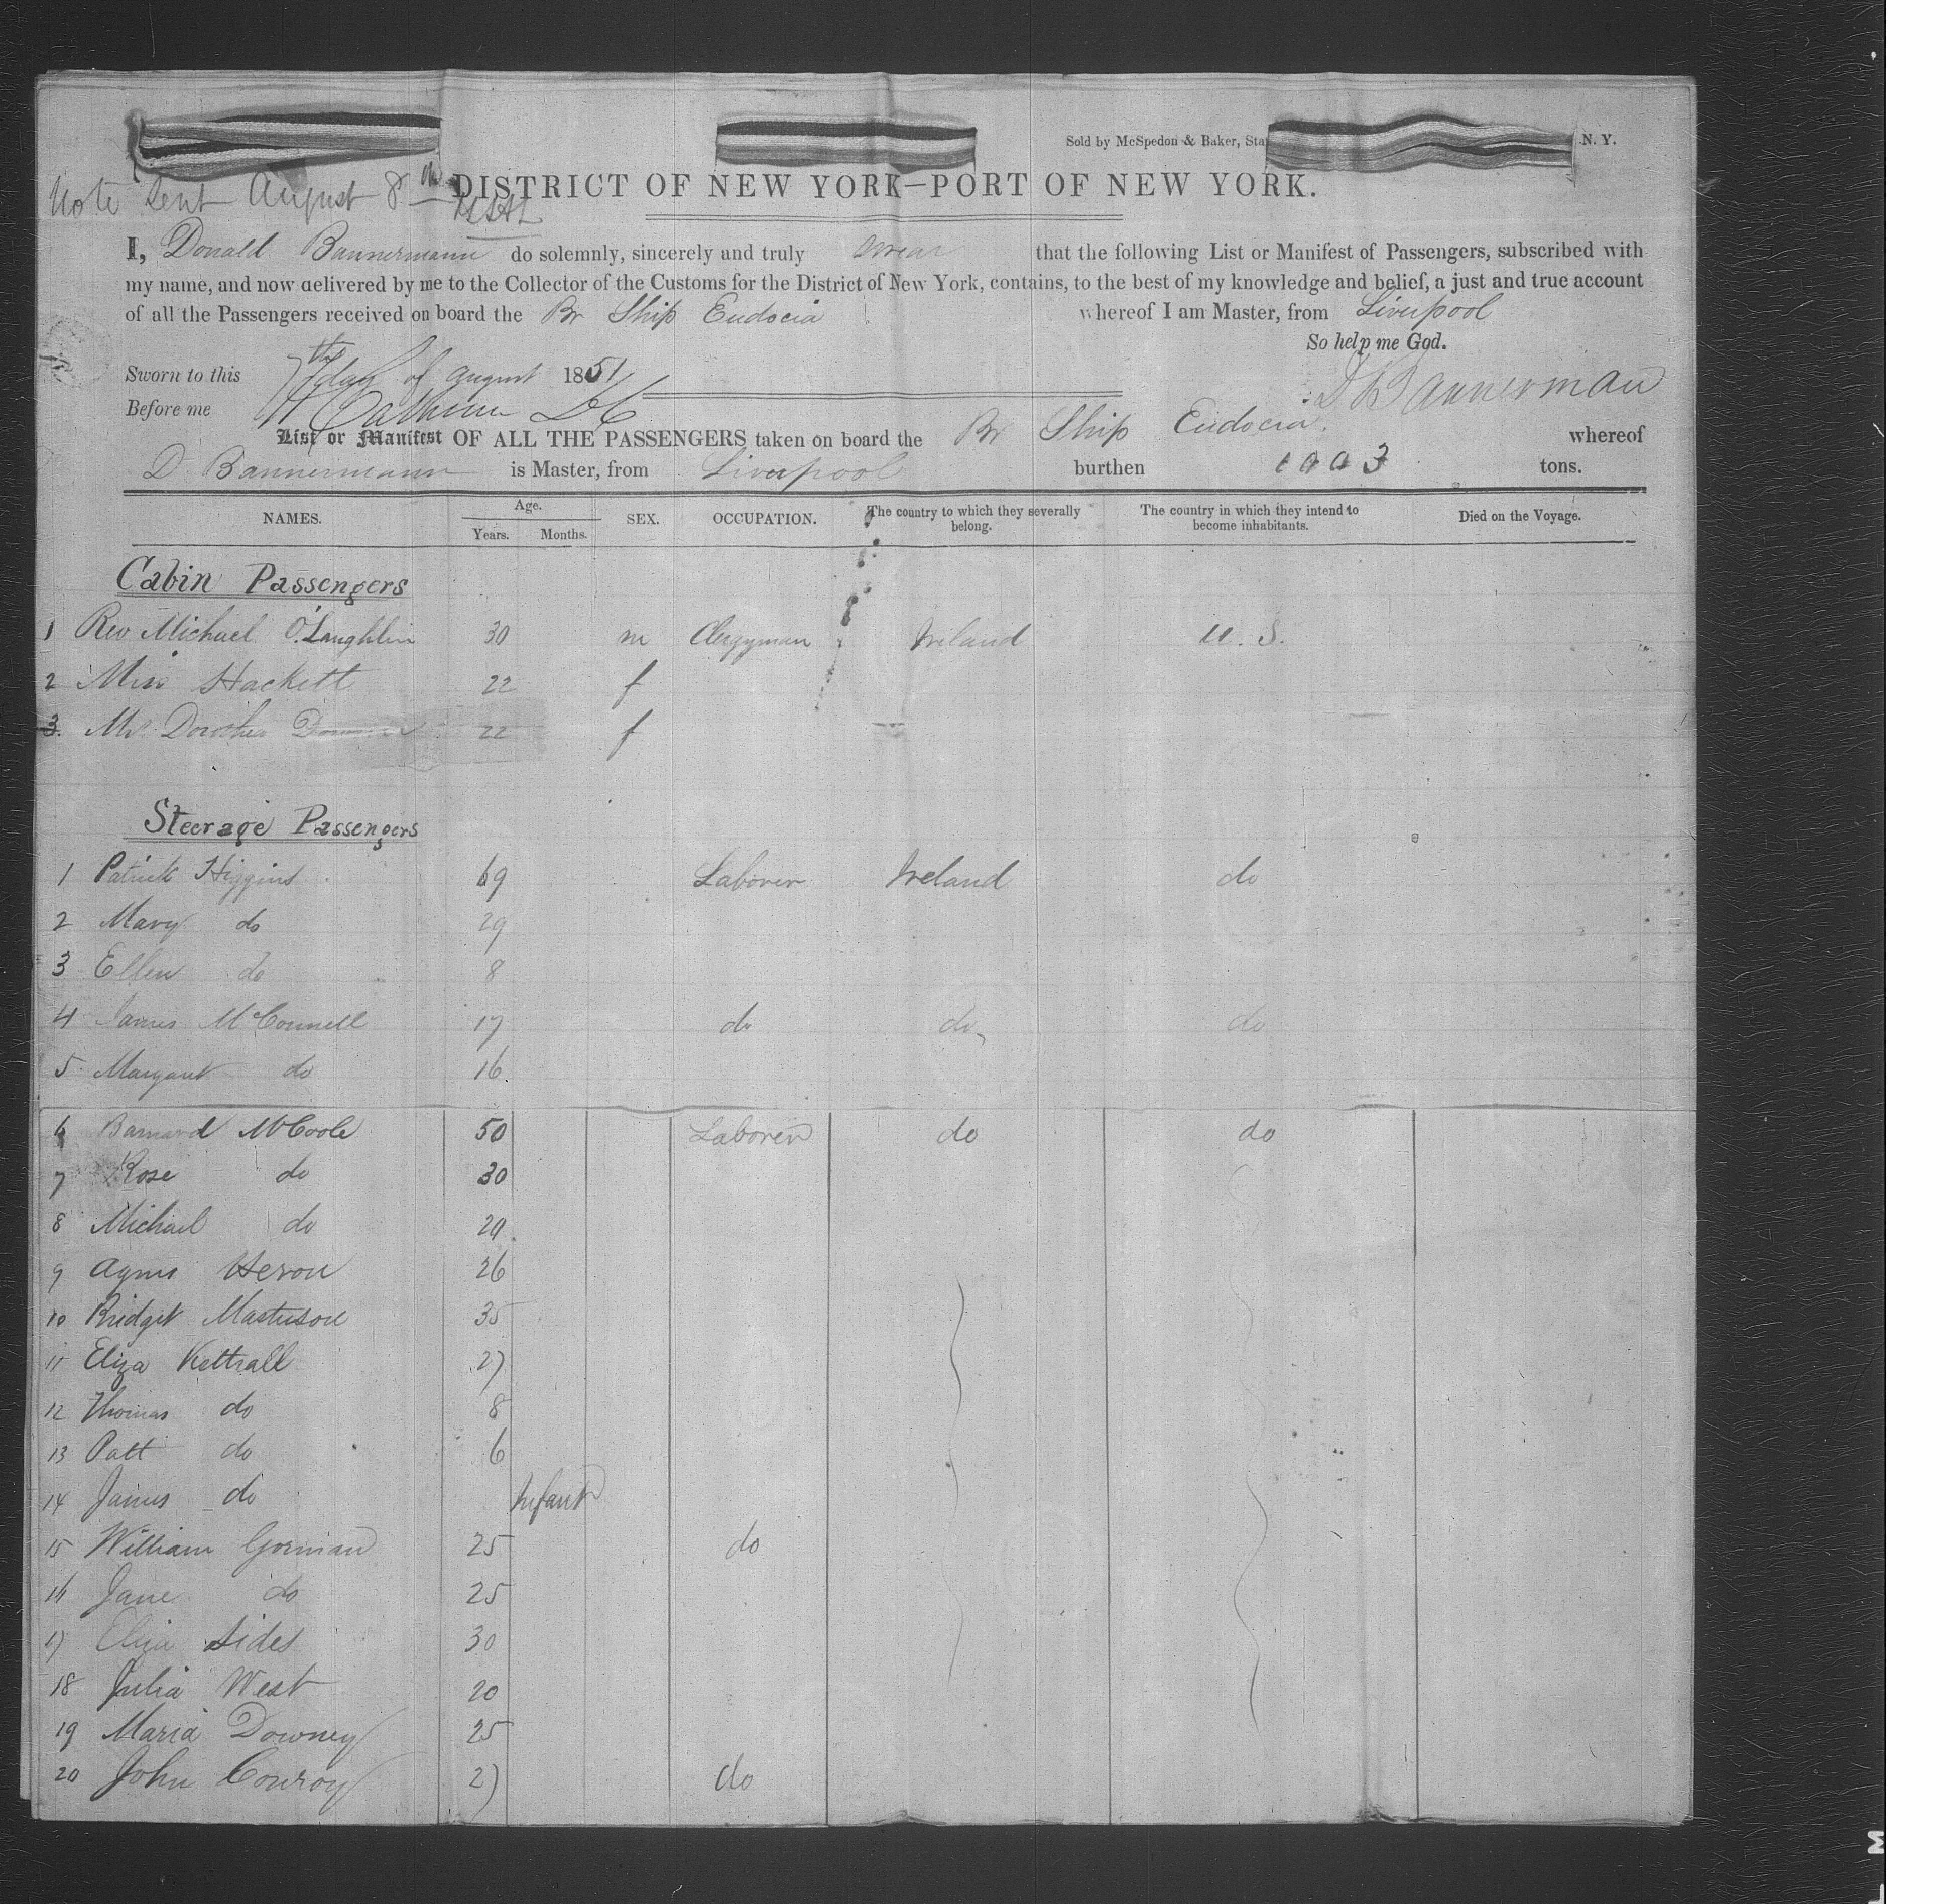 Sold by McSpedon & Baker, Sta N. Y.
Note Sent August 8th
DISTRICT OF NEW YORK—PORT OF NEW YORK.
I, Donald Bannermann do solemnly, sincerely and truly swear that the following List or Manifest of Passengers, subscribed with
my name, and now delivered by me to the Collector of the Customs for the District of New York, contains, to the best of my knowledge and belief, a just and true account
of all the Passengers received on board the Br Ship Eudocia whereof I am Master, from Liverpool
So help me God.
Sworn to this 7th day of August 1851
D Bannerman
Before me Calhoun
List or Manifest OF ALL THE PASSENGERS taken on board the Br Ship Eudocia. whereof
D Bannermann is Master, from Liverpool burthen 1003 tons.
NAMES. Age. Years. Months. SEX. OCCUPATION. The country to which they severally belong. The country in which they intend to become inhabitants. Died on the Voyage.
Cabin Passengers
1 Rev Michael O'Laughlin 30 m Clergyman Ireland U.S.
2 Miss Hackett 22 f
3. 22 f
Steerage Passengers
1 Patrick Higgins 69 Laborer Ireland do
2 Mary do 29
3 Ellen do 8
4 James McConnell 17 do do do
5 Margaret do 16
6 Barnard McCoole 50 Laborer do do
7 Rose do 30
8 Michael do 20
9 Agnes Heron 26
10 Bridget 35
11 Eliza Kettrall 27
12 Thomas do 8
13 Patt do 6
14 James do Infant
15 William Gorman 25 do
16 Jane do 25
17 Eliza Sides 30
18 Julia West 20
19 Maria Downey 25
20 John Conroy 27 do